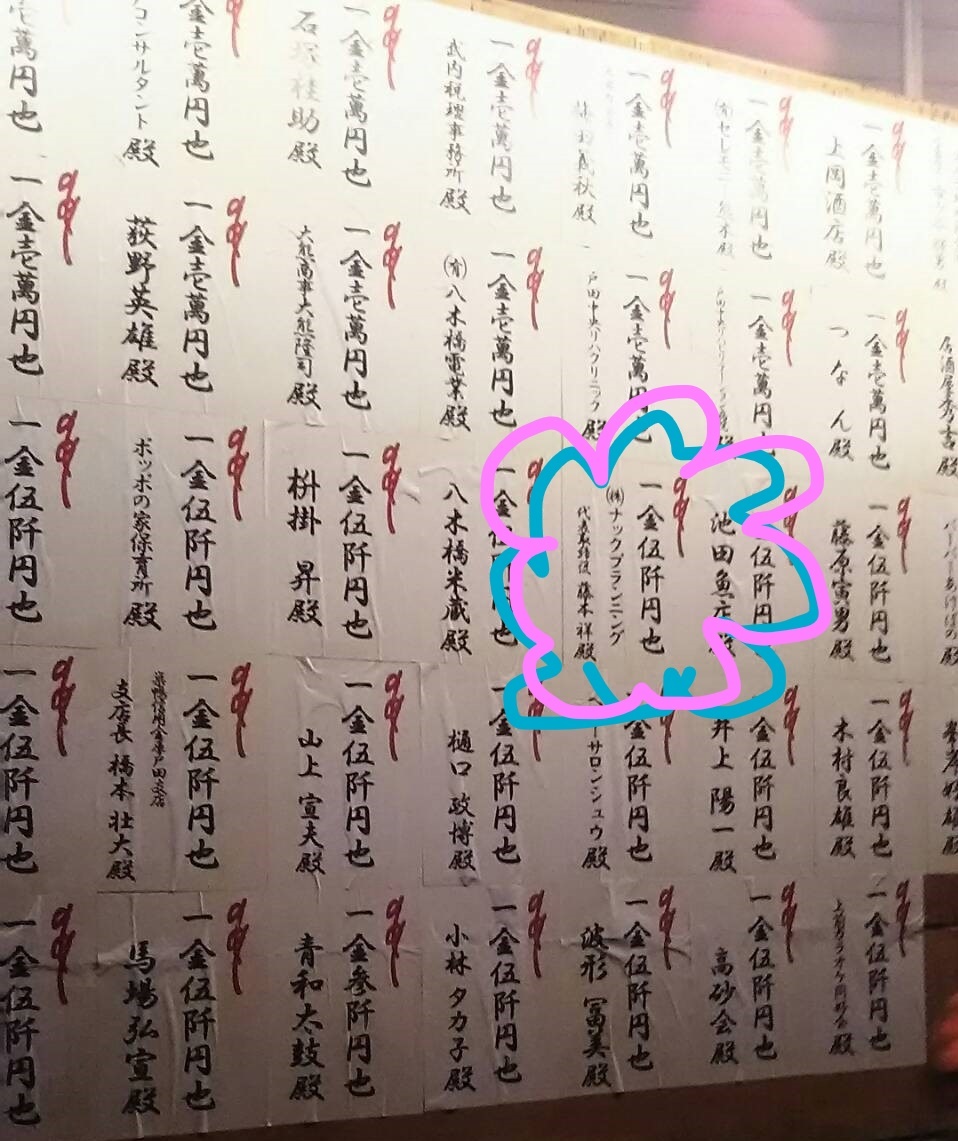 一金壱萬円也
上岡酒店殿
一金壱萬円也
一金壱萬円也
殿
一金壱萬円也
武内税理事務所殿
一金壱萬円也
石塚桂助殿
金壱萬円也
コンサルタント殿
壱萬円也
居酒屋
殿
一金壱萬円也
つなん殿
一金壱萬円也
一金壱萬円也
戸田中央リハクリニック殿
一金壱萬円也
(有)八木橋電業殿
一金壱萬円也
大熊商事大熊隆司殿
一金壱萬円也
荻野英雄殿
一金壱萬円也
一金伍阡円也
藤原寅男殿
伍阡円也
池田魚店殿
一金伍阡円也
(株)ナックプランニング
代表取締役 藤本 祥殿
一金伍阡円也
八木橋米蔵殿
一金伍阡円也
枡掛 昇殿
一金伍阡円也
ポッポの家保育所殿
一金伍阡円也
一金伍阡円也
木村良雄殿
金伍阡円也
井上陽一殿
金伍阡円也
ーサロンシュウ殿
一金伍阡円也
樋口政博殿
一金伍阡円也
山上宣夫殿
一金伍阡円也
巣鴨信用金庫戸田支店
支店長 橋本壮大殿
一金伍阡円也
一金伍阡円也
殿
一金伍阡円也
高砂会殿
一金伍阡円也
波形冨美殿
一金伍阡円也
小林タカ子殿
一金参阡円也
青和太鼓殿
一金伍阡円也
馬場弘宣殿
一金伍阡円也